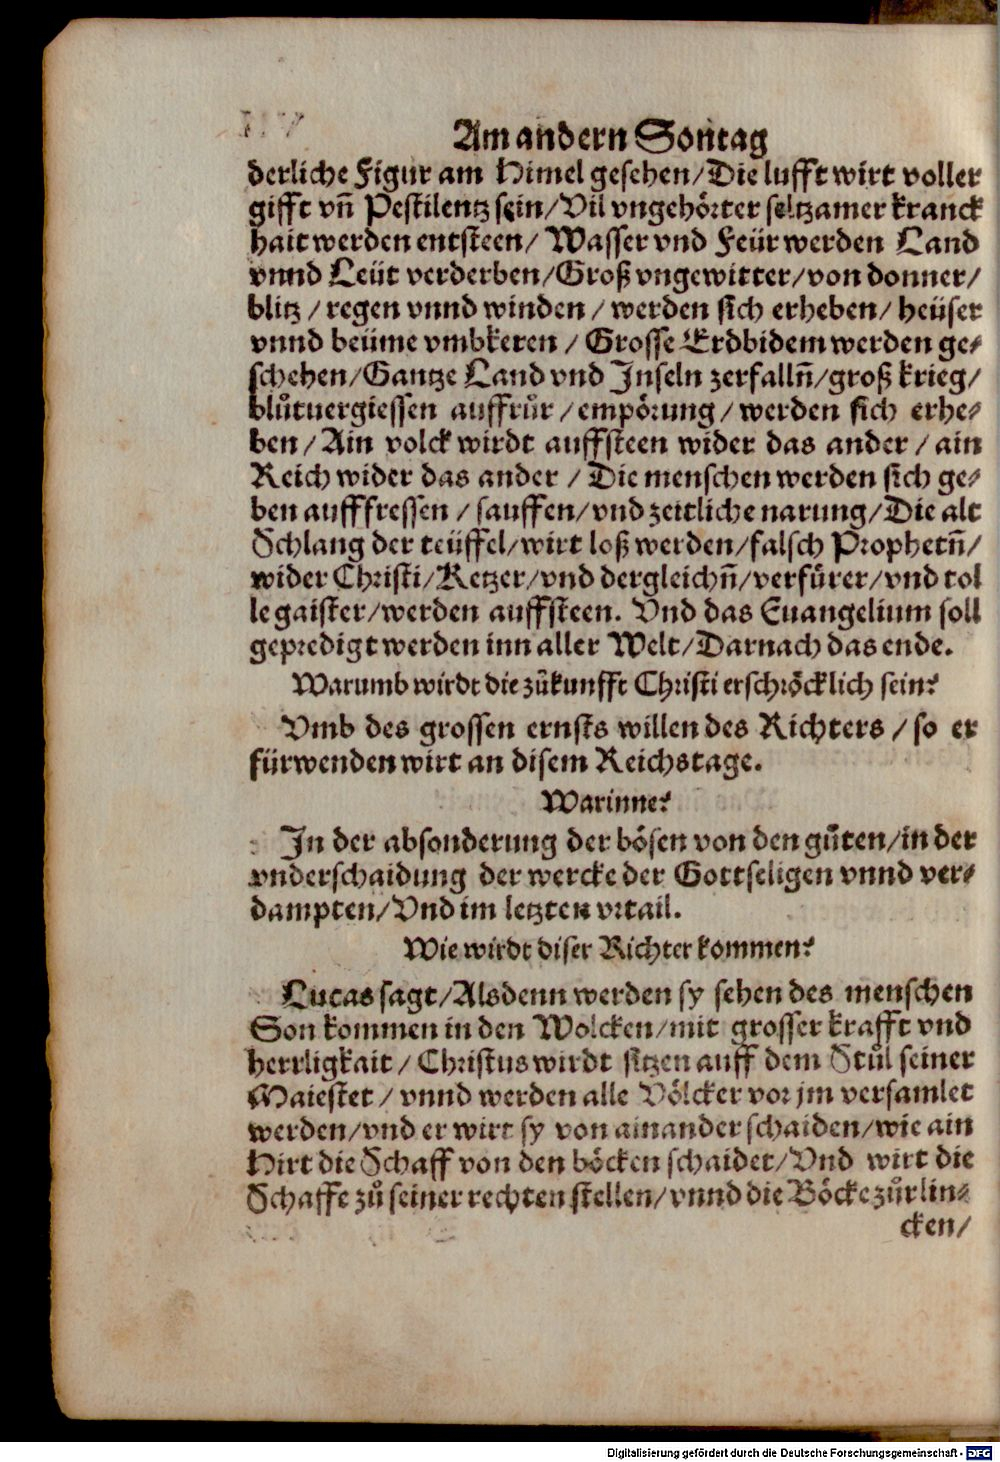 Am andern Sontag
derliche Figur am Himel gesehen/Die lufft wirt voller
gifft vn̄ Pestilentz sein/Vil vngehörter seltzamer kranck
hait werden entsteen/ Wasser vnd Feür werden Land
vnnd Leüt verderben/Groß vngewitter/von donner/
blitz / regen vnnd winden / werden sich erheben/ heüser
vnnd beüme vmbkeren / Grosse Erdbidem werden ge⸗
schehen/Gantze Land vnd Inseln zerfalln̄/groß krieg/
blůtuergiessen auffrůr / empörung / werden sich erhe⸗
ben / Ain volck wirdt auffsteen wider das ander / ain
Reich wider das ander / Die menschen werden sich ge⸗
ben auff fressen / sauffen/vnd zeitliche narung/Die alt
Schlang der teüffel/wirt loß werden/falsch Prophetn̄/
wider Christi/Ketzer/vnd dergleichn̄/verfürer/vnd tol
le gaister/werden auffsteen. Vnd das Euangelium soll
gepredigt werden inn aller Welt/Darnach das ende.
Warumb wirdt die zůkunfft Christi erschröcklich sein?
Vmb des grossen ernsts willen des Richters / so er
fürwenden wirt an disem Reichstage.
Warinne?
In der absonderung der bösen von den gůten/in der
vnderschaidung der wercke der Gottseligen vnnd ver⸗
dampten/Vnd im letzten vrtail.
Wie wirdt diser Richter kommen?
Lucas sagt/Alsdenn werden sy sehen des menschen
Son kommen in den Wolcken/mit grosser krafft vnd
herrligkait / Christus wirdt sitzen auff dem Stůl seiner
Maiestet / vnnd werden alle Völcker vor jm versamlet
werden/vnd er wirt sy von ainander schaiden/wie ain
Hirt die Schaff von den böcken schaidet/Vnd wirt die
Schaffe zů seiner rechten stellen/vnnd die Böcke zůr lin⸗
cken/
Digitalisierung gefördert durch die Deutsche Forschungsgemeinschaft - DFG